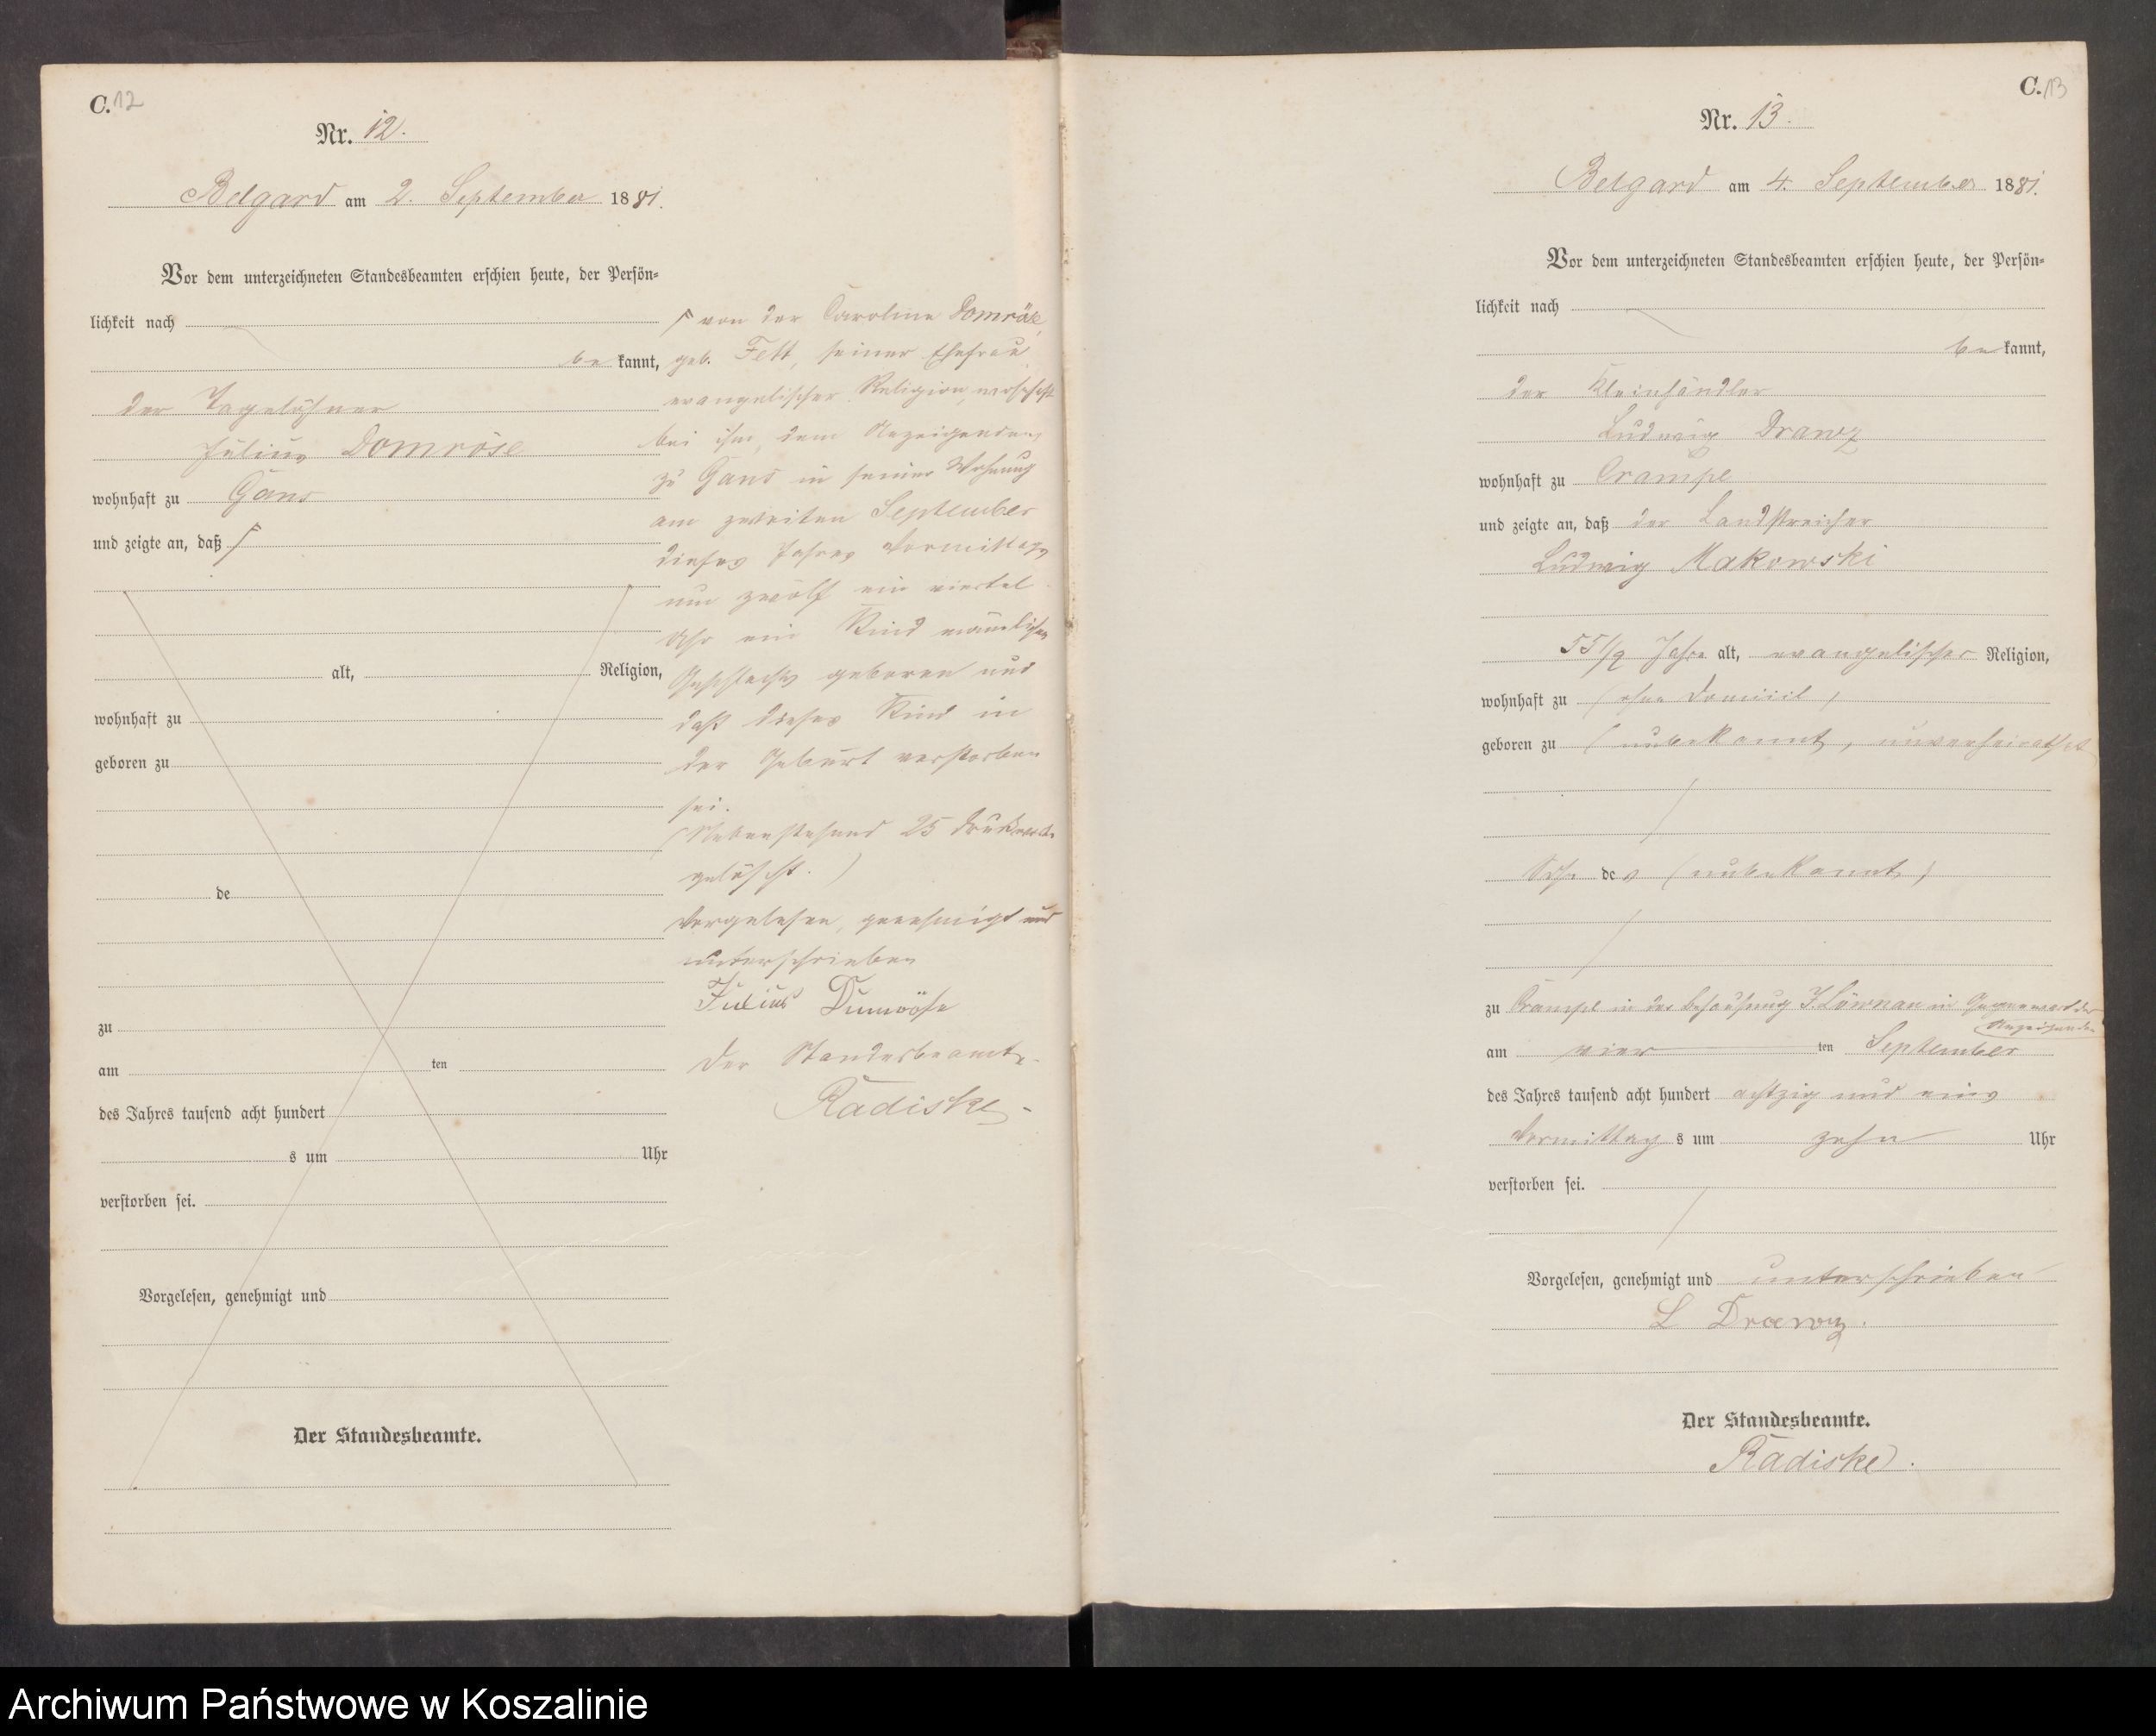 C. 12
Nr. 12.
Belgard am 2. September 1881.
Vor dem unterzeichneten Standesbeamten erschien heute, der Persön-
lichkeit nach
be kannt,
der Tagelöhner
Julius Domröse
wohnhaft zu Gans
und zeigte an, daß
alt, Religion,
wohnhaft zu
geboren zu
de
zu
am ten
des Jahres tausend acht hundert
s um Uhr
verstorben sei.
Vorgelesen, genehmigt und
Der Standesbeamte.
von der Caroline Domröse,
geb. Fett, seiner Ehefrau
evangelischer Religion, wohnhaft
bei ihm, dem Anzeigenden,
zu Gans in seiner Wohnung
am zweiten September
dieses Jahres Vormittags
um zwölf ein viertel
Uhr ein Kind männlichen
Geschlechts geboren und
daß dieses Kind in
der Geburt verstorben
sei.
(Nebenstehend 25 Druckworte
gelöscht.)
Vorgelesen, genehmigt und
unterschrieben
Julius Dumröse
Der Standesbeamte.
Radiske
C. 13
Nr. 13.
Belgard am 4. September 1881.
Vor dem unterzeichneten Standesbeamten erschien heute, der Persön-
lichkeit nach
be kannt,
der Kleinhändler
Ludwig Drawz
wohnhaft zu Crampe
und zeigte an, daß der Landstreicher
Ludwig Makowski
55 1/2 Jahre alt, evangelischer Religion,
wohnhaft zu (ohne Domicil)
geboren zu (unbekannt, unverheirathet
Sohn des (unbekannt)
zu Crampe in der Behausung in Gegenwart des
Anzeigenden
am vier ten September
des Jahres tausend acht hundert achtzig und eins
Vormittag s um zehn Uhr
verstorben sei.
Vorgelesen, genehmigt und unterschrieben
L Drawz.
Der Standesbeamte.
Radiske.
Archiwum Państwowe w Koszalinie